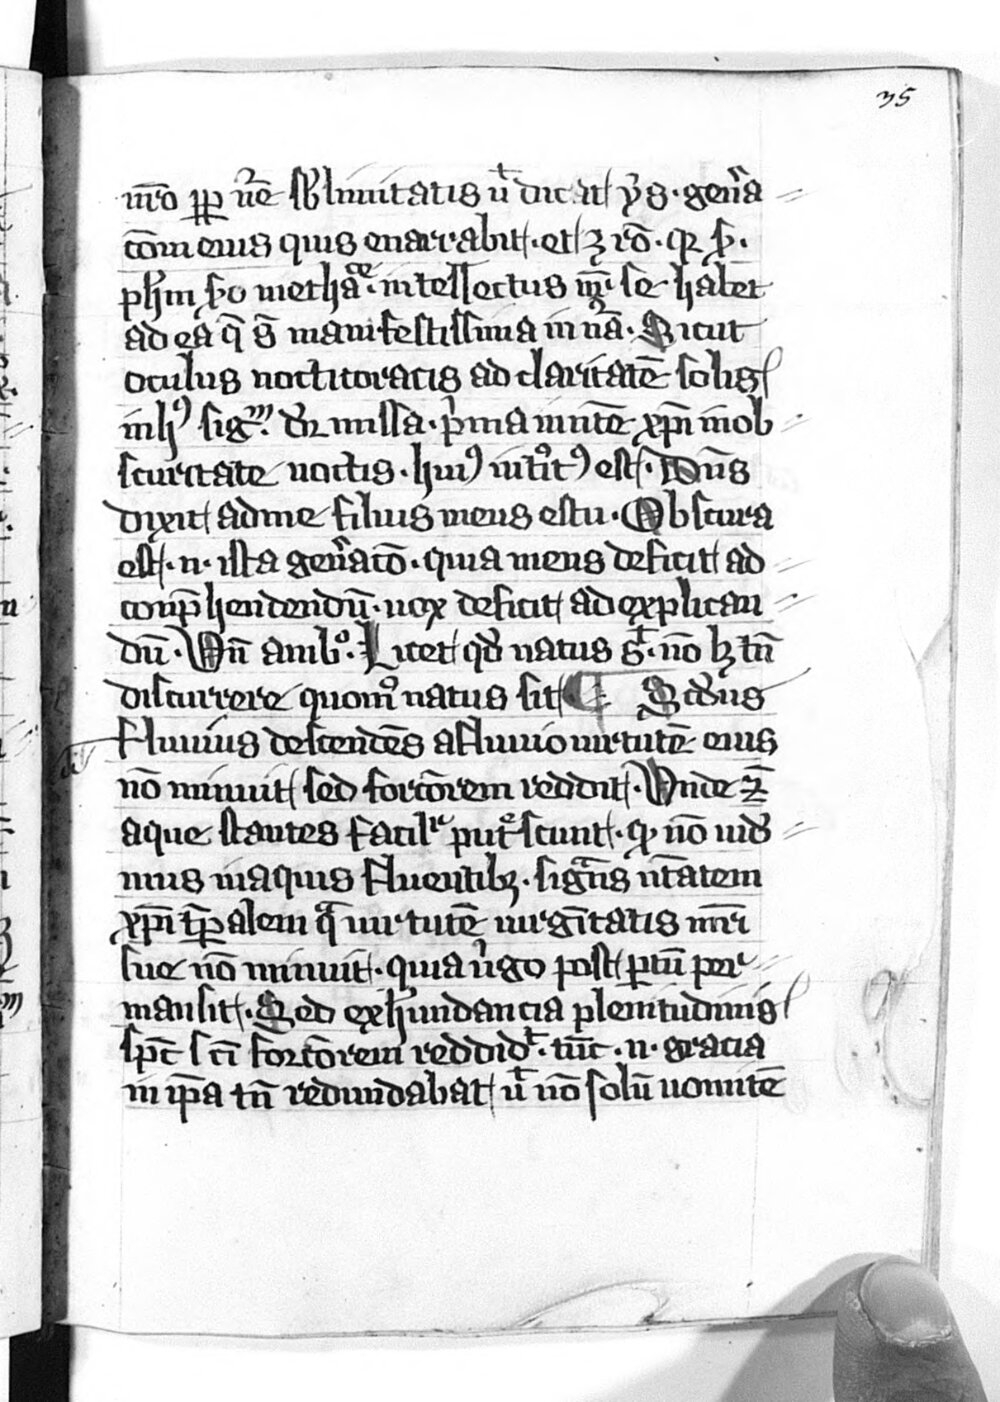 35
nr̄o ꝓp nat̄e sb̾limitatis ut dicat ys · gen̾a
c̄om eius quis enarrabit · et ꝫ rō · qꝛ s̄ ·
ph̄m s̄o metha · intellectus nr̄ · se habet
ad ea q̄ s̄ manifestissima in nā · Sicut
oculus nocticoracis ad claritatē solis
in hꝰ sigm · dr̄ missa · p̾ma in nocte xp̄i in ob
scuritate noctis · huiꝰ introitꝰ est · Dn̄s
dixit ad me filius meus es tu · Obscura
est · n · ista gen̾acō · quia mens deficit ad
conp̄hendendū · uox deficit ad explican
dū · Vn̄ amb̾o · Licet qd̾ natus sit · nō hꝫ tn̄
discurrere quomº natus sit ¶ Scd̾us
fluuius descendēs a fluuio uirtutē eius
nō minuit sed forcōrem reddit · Vnde
aque stantes facilr̄ put̾scunt · qꝫ nō uid̾
mus in aquis fluentibꝫ · sigᷓns n̄tatem
xp̄i tp̄alem q̄ uirtutē uirgītatis mr̄i
sue nō minuit · quia ũgo post ꝑtū per
mansit · Sed exh̾undancia plenitudinis
sp̄c sc̄i forcōrem reddidit · tūc · n · gracia
in ip̄a tn̄ redundabat ut nō solū uomitē